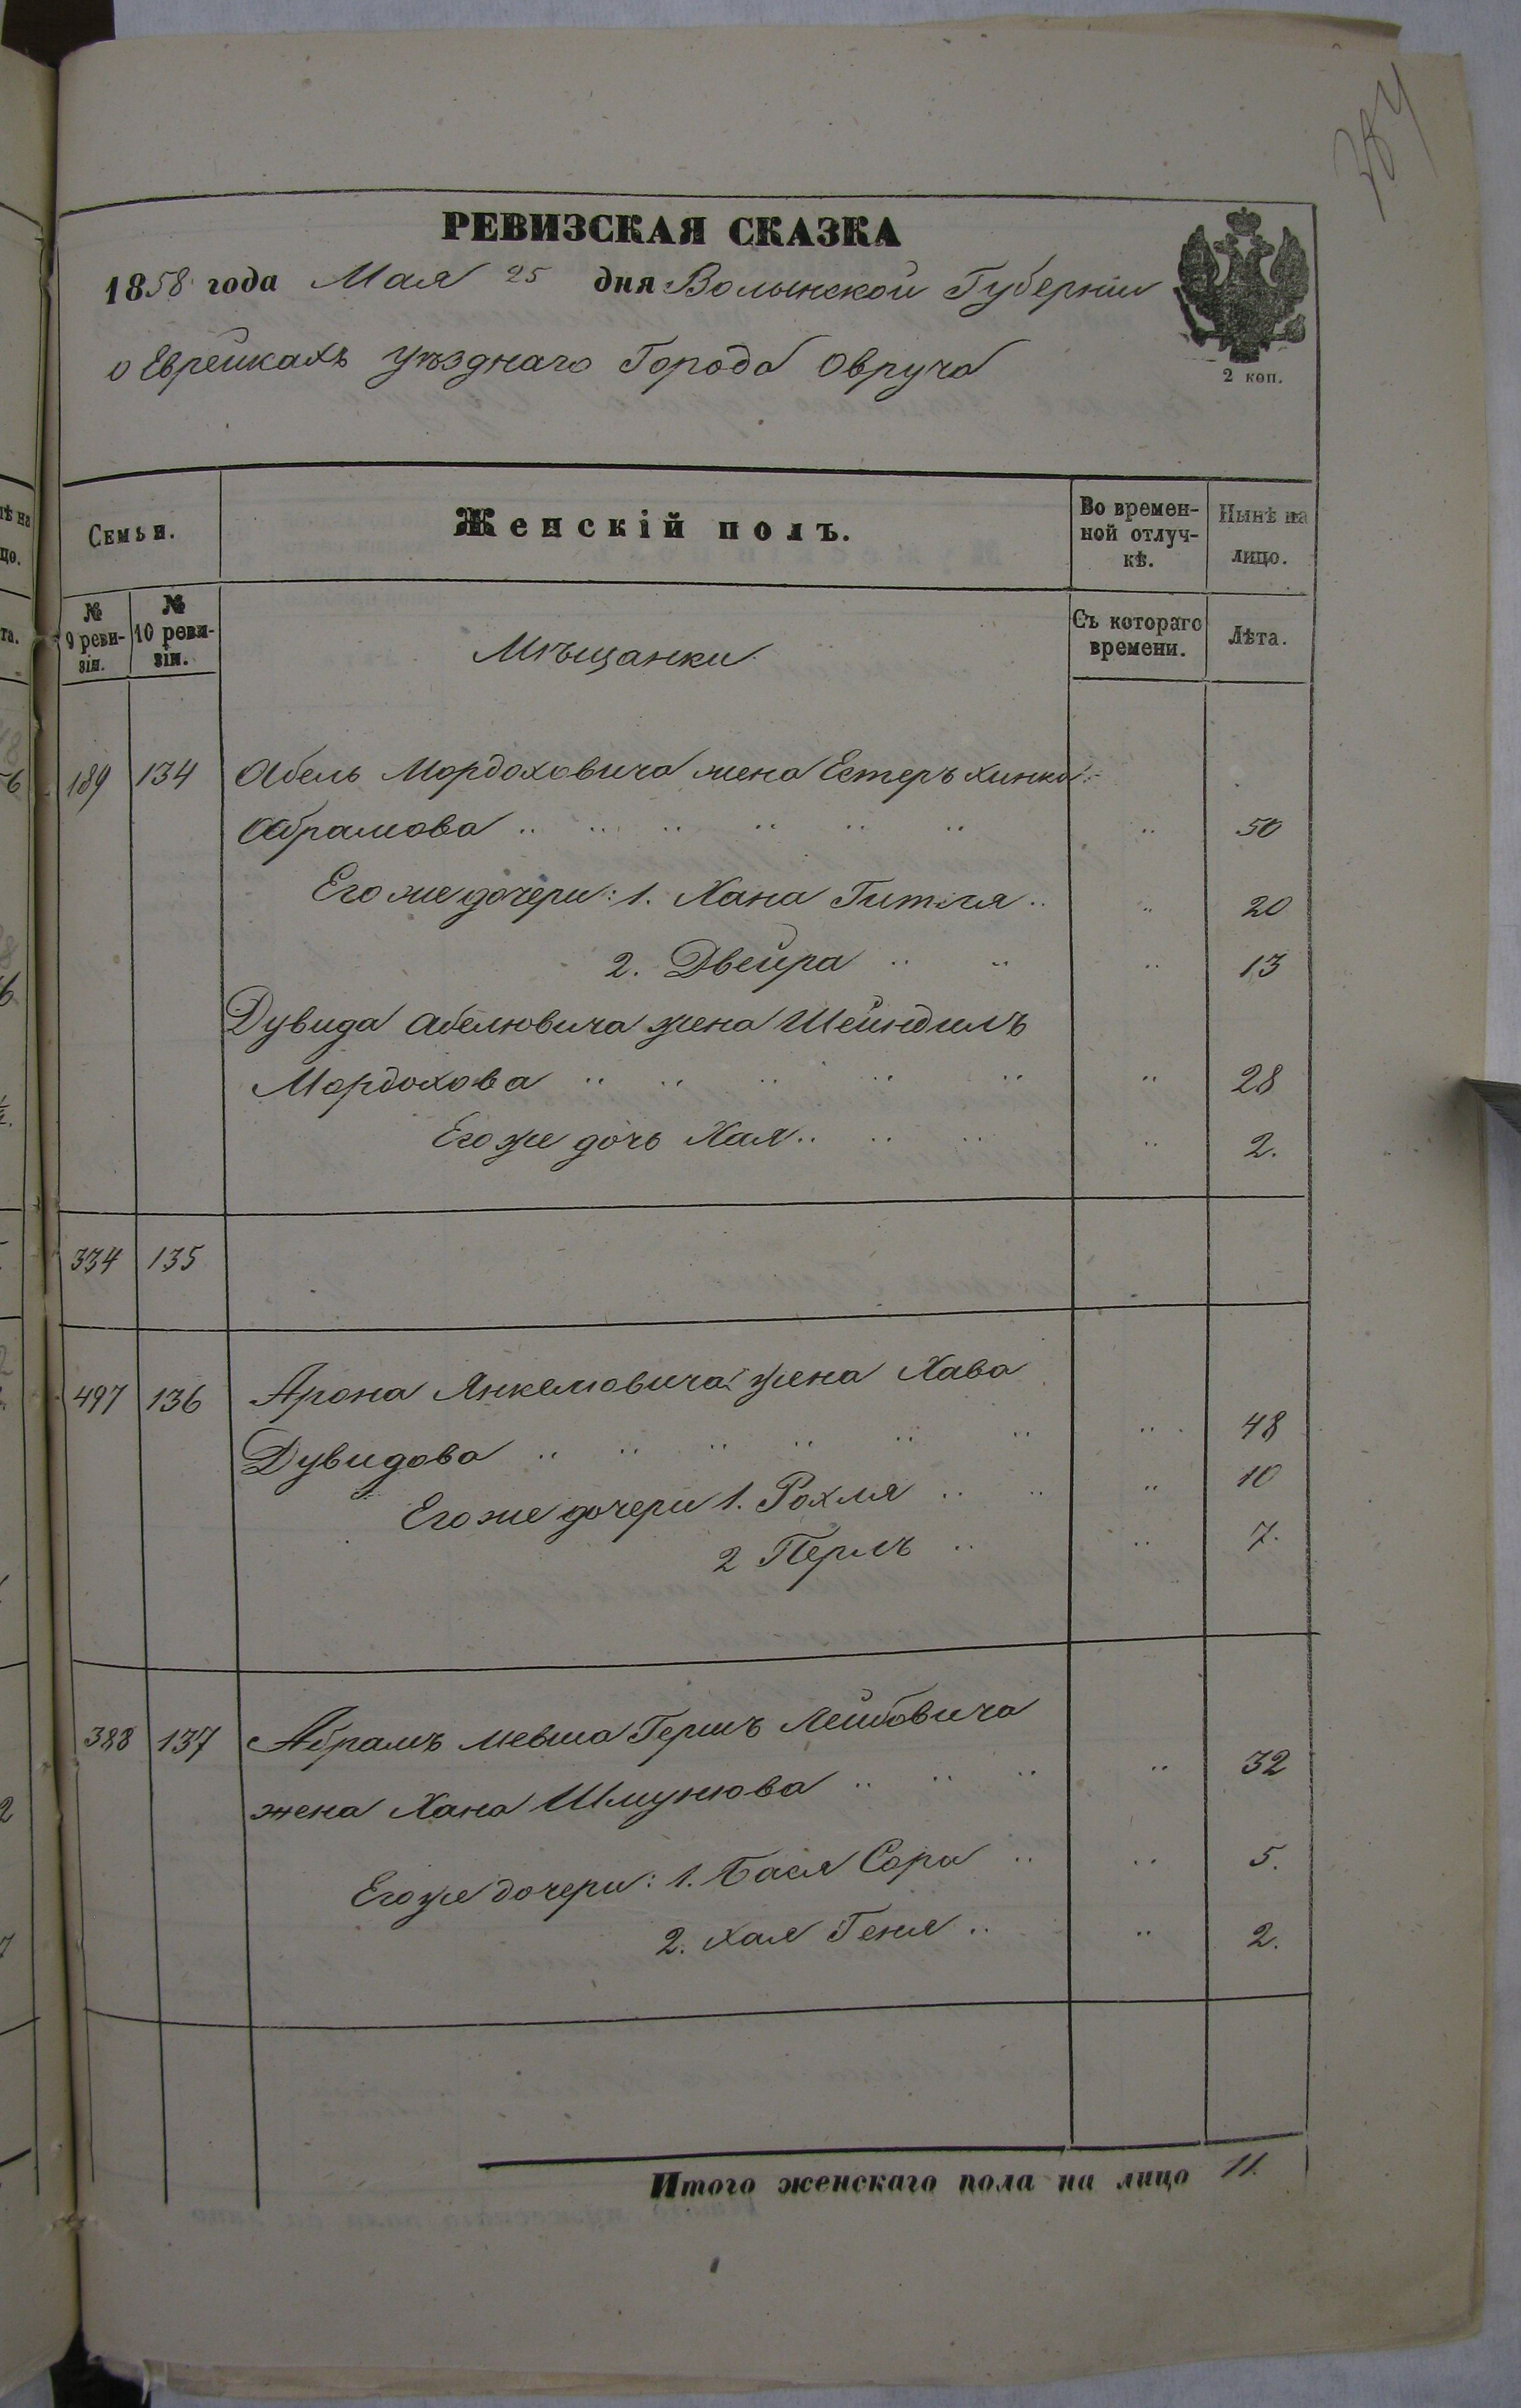 384
РЕВИЗСКАЯ СКАЗКА
1858 года Мая 25 дня Волынской Губерніи
о Еврейкахъ уѣзднаго Города Овруча
2 коп.
Семьи. Женскій полъ. Во времен-ной отлуч-кѣ. Нынѣ на лицо.
№ 9 реви-зіи. № 10 реви-зіи. Мѣщанки Съ котораго времени. Лѣта.
189 134 Абель Мордоховича жена Естеръ Хинка
Абрамова 50
Его же дочери: 1. Хана Гитля 20
2. Двейра 13
Дувида Абелювича жена Шейндиль
Мордохова 28
Его же дочь Хая 2.
334 135
497 136 Арона Янкелювича жена Хава
Дувидова 48
Его же дочери 1. Рохля 10
2 Перль 7.
388 137 Абрамъ Мевша Гершъ Лейбовича
жена Хана Шмунова 32
Его же дочери: 1. Бася Сора 5.
2. Хая Геня 2.
Итого женскаго пола на лицо 11.